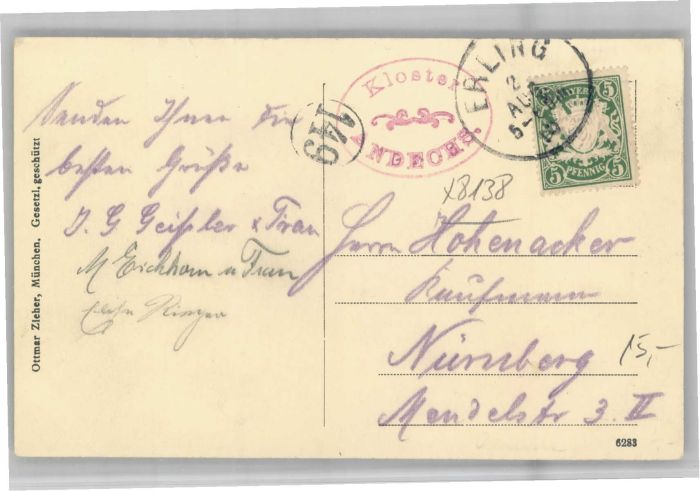 Ottmar Zieher, München. Gesetzl. geschützt
Senden Ihnen die
besten Grüße
J. G Geißler & Frau
M Eichhorn u Frau
149
Kloster
ANDECHS.
ERLING
2
AUG
BAYERN
5 5
PFENNIG
x8138
Herrn Hohenacker
Kaufmann
Nürnberg
15,-
Mendelstr 3. II
6283